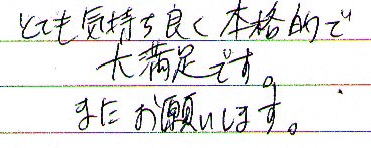 とても気持ち良く本格的で
大満足です。
またお願いします。